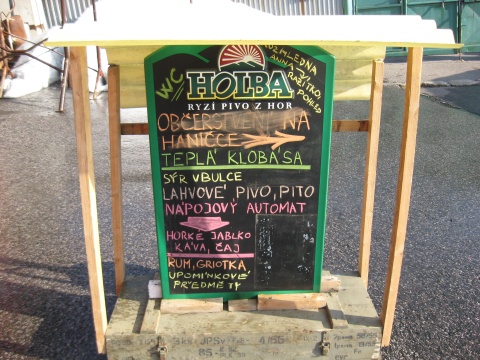 WC
HOLBA
RYZÍ PIVO Z HOR
ROZHLEDNA
ANNA
RAZÍTKO,
POHLED
OBČERSTVENÍ NA
HANIČCE
TEPLÁ KLOBÁSA
SÝR V BULCE
LAHVOVÉ PIVO, PITO
NÁPOJOVÝ AUTOMAT
HORKÉ JABLKO
KÁVA, ČAJ
RUM, GRIOTKA
UPOMÍNKOVÉ
PŘEDMĚTY